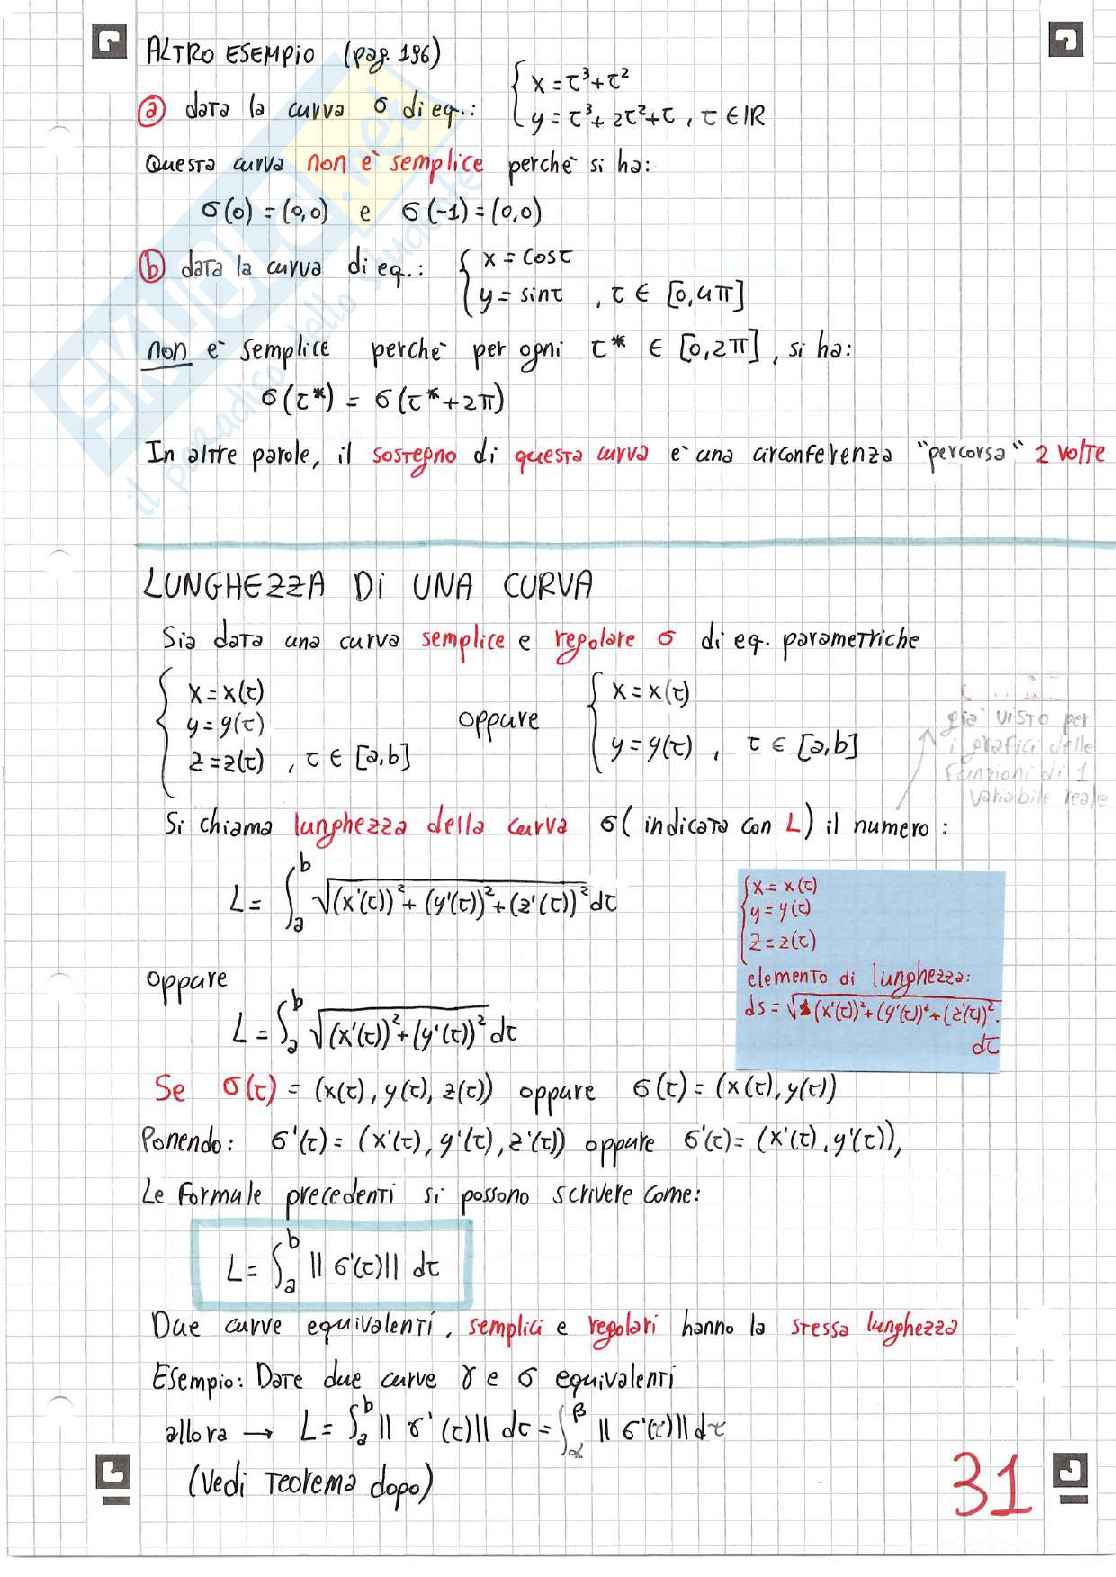 ALTRO ESEMPIO (pag. 196)
ⓐ data la curva σ di eq.: { x = τ³+τ²
y = τ³+2τ²+τ , τ ∈ IR
Questa curva non è semplice perchè si ha:
σ(0) = (0,0) e σ(-1) = (0,0)
ⓑ data la curva di eq.: { x = cosτ
y = sinτ , τ ∈ [0,4π]
non è semplice perchè per ogni τ* ∈ [0,2π], si ha:
σ(τ*) = σ(τ*+2π)
In altre parole, il sostegno di questa curva è una circonferenza "percorsa" 2 volte
SKUOLA.net
il paradiso dello studente
LUNGHEZZA DI UNA CURVA
Sia data una curva semplice e regolare σ di eq. parametriche
{ x = x(τ)
y = y(τ)
z = z(τ) , τ ∈ [a,b]
oppure
{ x = x(τ)
y = y(τ) , τ ∈ [a,b]
già visto per
i grafici delle
funzioni di 1
variabile reale
Si chiama lunghezza della curva σ (indicata con L) il numero:
L = ∫ₐᵇ √((x'(τ))² + (y'(τ))² + (z'(τ))²) dτ
{ x = x(τ)
y = y(τ)
z = z(τ)
elemento di lunghezza:
ds = √((x'(τ))² + (y'(τ))² + (z'(τ))²) ·
dτ
oppure
L = ∫ₐᵇ √((x'(τ))² + (y'(τ))²) dτ
Se σ(τ) = (x(τ), y(τ), z(τ)) oppure σ(τ) = (x(τ), y(τ))
Ponendo: σ'(τ) = (x'(τ), y'(τ), z'(τ)) oppure σ'(τ) = (x'(τ), y'(τ)),
Le formule precedenti si possono scrivere come:
L = ∫ₐᵇ || σ'(τ)|| dτ
Due curve equivalenti, semplici e regolari hanno la stessa lunghezza
Esempio: Date due curve γ e σ equivalenti
allora → L = ∫ₐᵇ || γ'(τ)|| dτ = ∫_α^β || σ'(τ)|| dτ
(Vedi Teorema dopo)
31